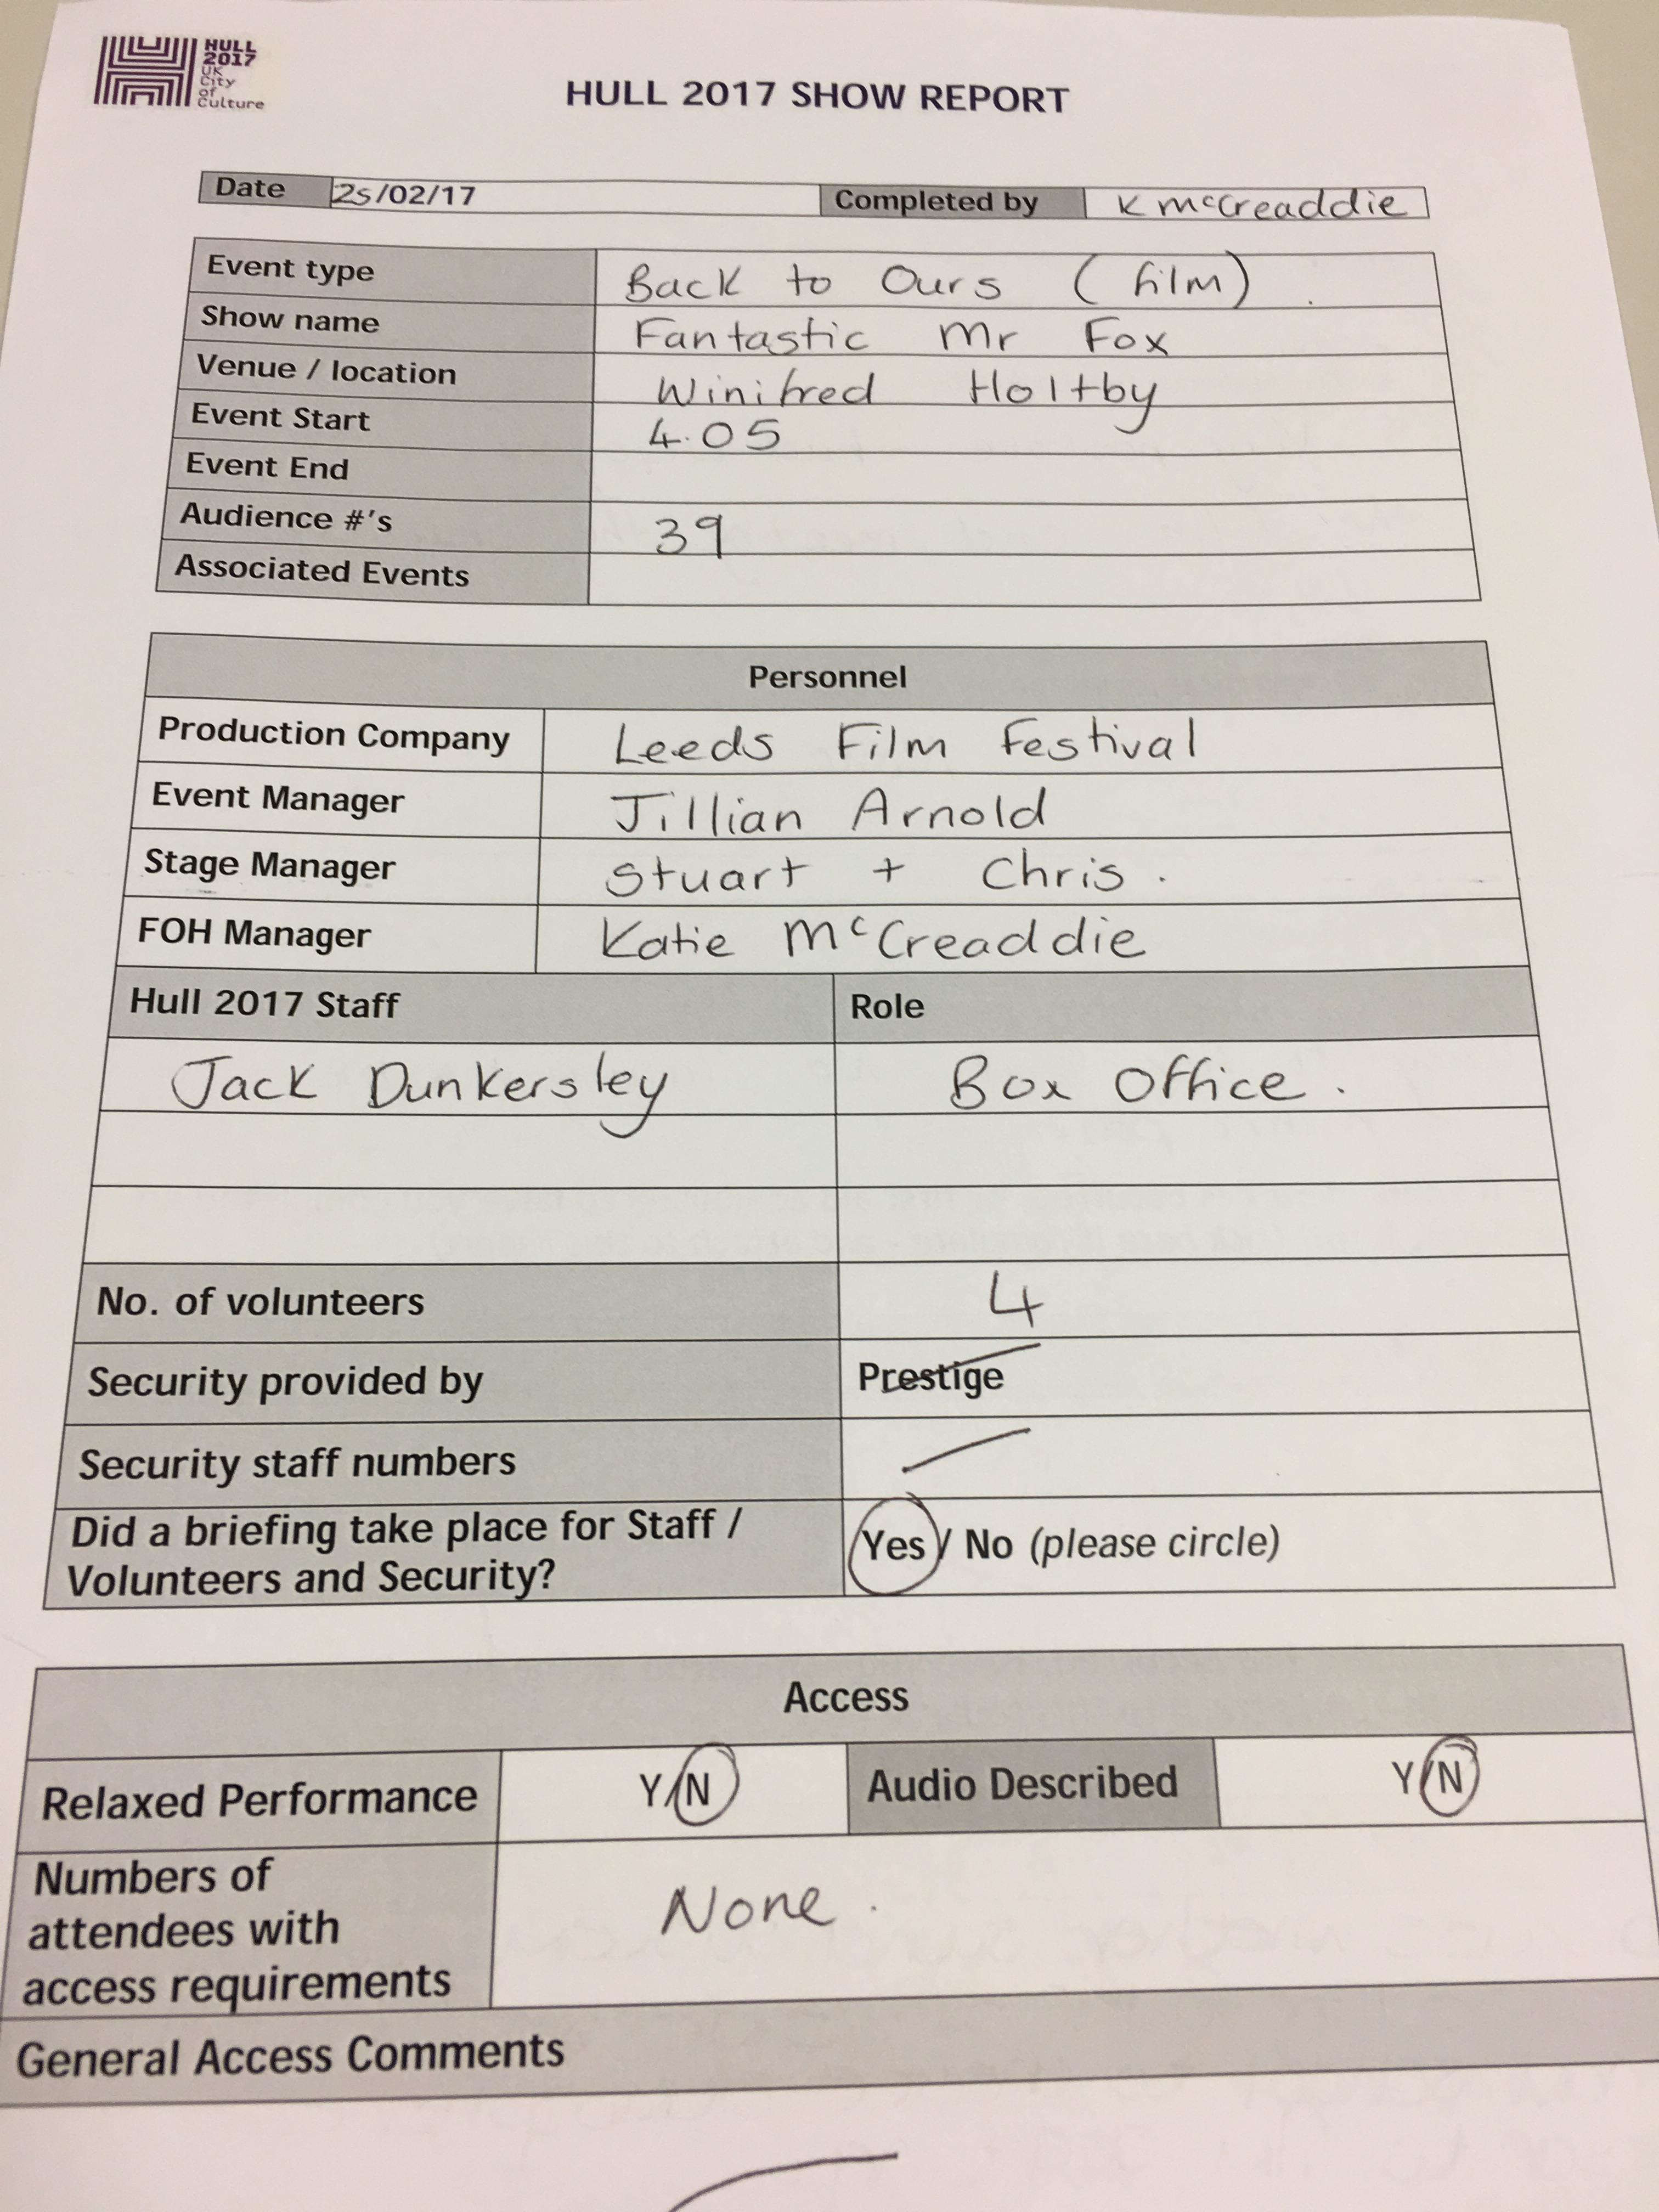 HULL
2017
UK
City
of
Culture
HULL 2017 SHOW REPORT
Date 25/02/17 Completed by K McCreaddie
Event type Back to Ours (film).
Show name Fantastic Mr Fox
Venue / location Winifred Holtby
Event Start 4.05
Event End
Audience #'s 39
Associated Events
Personnel
Production Company Leeds Film Festival
Event Manager Jillian Arnold
Stage Manager Stuart + Chris.
FOH Manager Katie McCreaddie
Hull 2017 Staff Role
Jack Dunkersley Box Office.
No. of volunteers 4
Security provided by Prestige
Security staff numbers
Did a briefing take place for Staff / Yes / No (please circle)
Volunteers and Security?
Access
Relaxed Performance Y/N Audio Described Y/N
Numbers of
attendees with None.
access requirements
General Access Comments